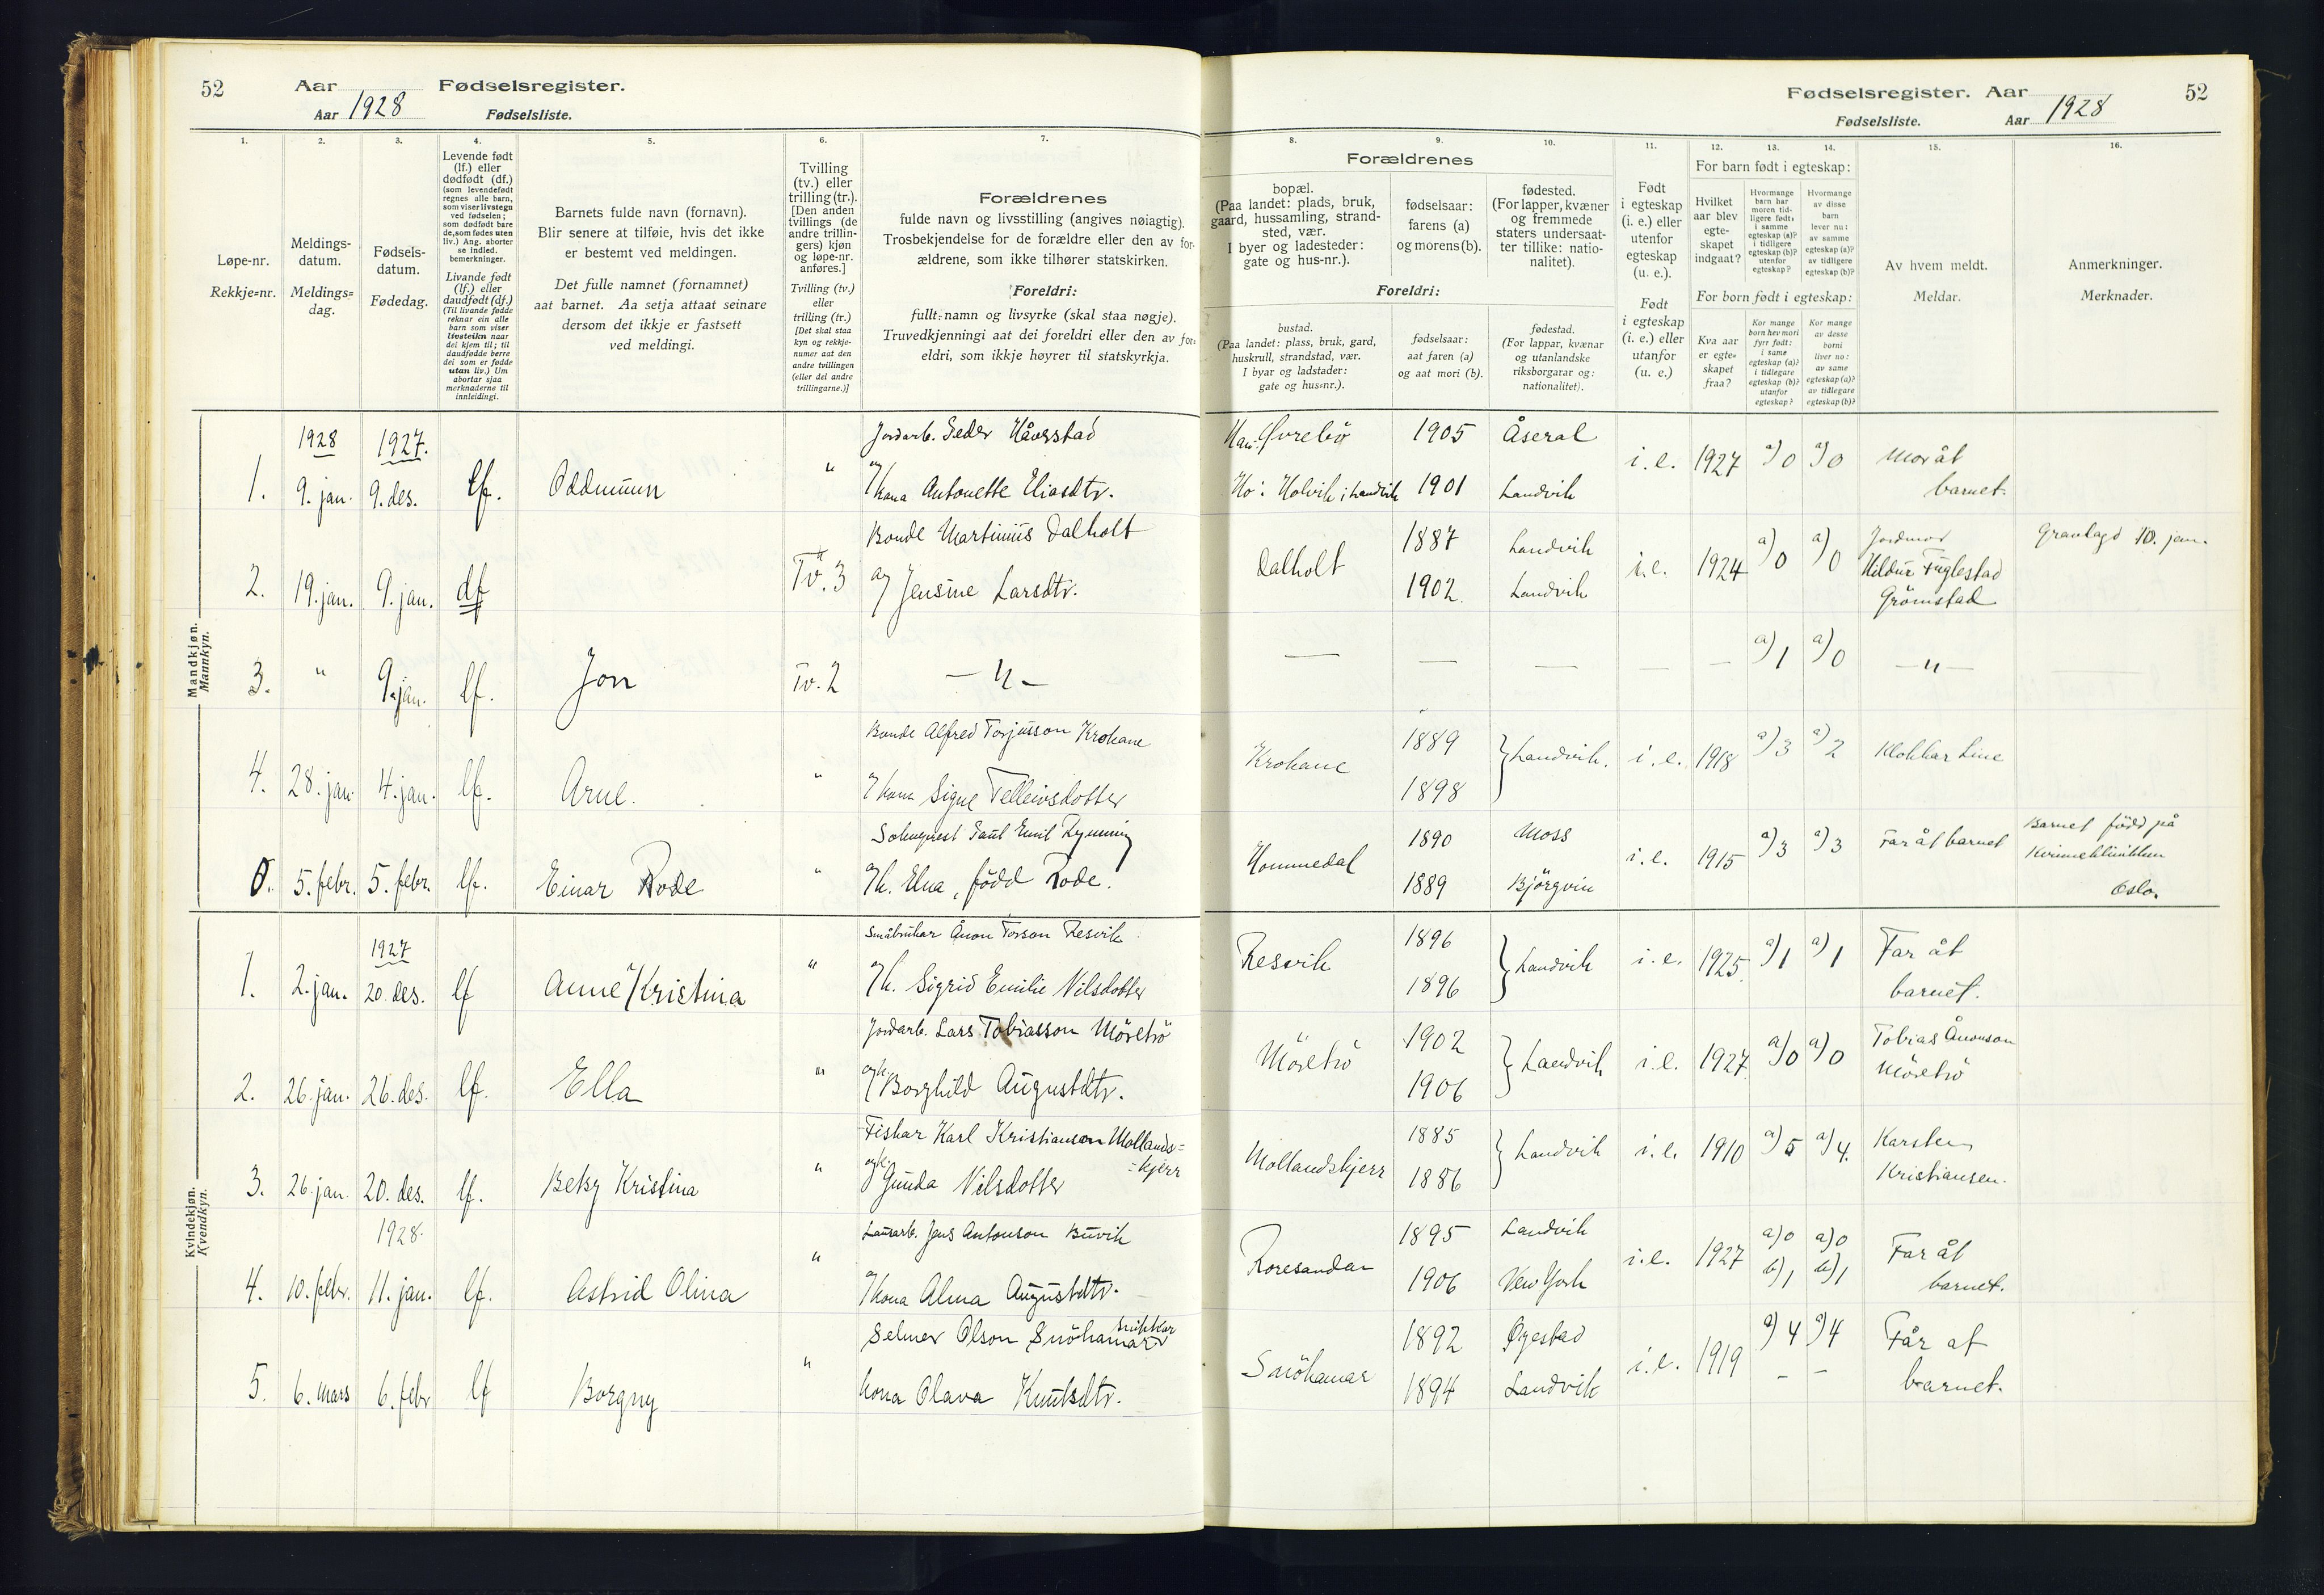 52
Aar
Fødselsregister.
Aar 1928
Fødselsliste.
1.
2.
3.
4.
5.
6.
7.
Løpe-nr.
Rekkje=nr.
Meldings-
datum.
Meldings=
dag.
Fødsels-
datum.
Fødedag.
Levende født
(lf.) eller
dødfødt (df.)
(som levendefødt
regnes alle barn,
som viser livstegn
ved fødselen;
som dødfødt bare
de, som fødes uten
liv.) Ang. aborter
se indled.
bemerkninger.
Livande født
(lf.) eller
daudfødt (df.)
(Til livande fødde
reknar ein alle
barn som viser
livsteikn naar
dei kjem til; til
daudfødde berre
dei som er fødde
utan liv.) Um
abortar sjaa
merknaderne til
innleidingi.
Barnets fulde navn (fornavn).
Blir senere at tilføie, hvis det ikke
er bestemt ved meldingen.
Det fulle namnet (fornamnet)
aat barnet. Aa setja attaat seinare
dersom det ikkje er fastsett
ved meldingi.
Tvilling
(tv.) eller
trilling (tr.).
[Den anden
tvillings (de
andre trillin-
gers) kjøn
og løpe-nr.
anføres.]
Tvilling (tv.)
eller
trilling (tr.)
[Det skal staa
kyn og rekkje-
numer aat den
andre tvillingen
(eller dei andre
trillingarne.)]
Forældrenes
fulde navn og livsstilling (angives nøiagtig).
Trosbekjendelse for de forældre eller den av for-
ældrene, som ikke tilhører statskirken.
Foreldri:
fullt namn og livsyrke (skal staa nøgje).
Truvedkjenningi aat dei foreldri eller den av for-
eldri, som ikkje høyrer til statskyrkja.
Mandkjøn.
Mannkyn.
1928 1927. Jordarb. Peder Håverstad
1. 9. jan. 9. des. lf. Oddmunn " og kona Antonette Eliasdtr.
Bonde Martinius Dalholt
2. 19. jan. 9. jan. df Tv. 3 og Jensine Larsdtr.
3. " 9. jan. lf. Jon Tv. 2 — " —
Bonde Alfred Torjusson Krohane
4. 28. jan. 4. jan. lf. Arne. " og kona Signe Telleivsdotter
Sokneprest Paul Emil Rynning
5. febr. 5. febr. lf. Einar Rode " og k. Elna, fødd Rode.
Kvindekjøn.
Kvendkyn.
1927 Småbrukar Ånon Torson Resvik
1. 2. jan. 20. des. lf Anne Kristina " og k. Sigrid Emilie Nilsdotter
Jordarb. Lars Tobiasson Møretrø
2. 26. jan. 26. des. lf. Ella " og k. Borghild Augustdtr.
Fiskar Karl Kristianson Mollands=
=kjerr
3. 26. jan. 20. des. lf. Betsy Kristina " og k. Gunda Nilsdotter
1928. Lausarb. Jens Antonson Buvik
4. 10. febr. 11. jan. lf. Astrid Olina " og kona Alma Augustdtr.
Snikkar
Selmer Olson Snøhamar
5. 6. mars 6. febr lf Borgny " kona Olava Knutsdtr.
Fødselsregister. Aar
52
Fødselsliste.
Aar 1928
8.
9.
10.
11.
12.
13.
14.
15.
16.
Forældrenes
bopæl.
(Paa landet: plads, bruk,
gaard, hussamling, strand-
sted, vær.
I byer og ladesteder:
gate og hus-nr.).
fødselsaar:
farens (a)
og morens (b).
fødested.
(For lapper, kvæner
og fremmede
staters undersaat-
ter tillike: natio-
nalitet).
Foreldri:
bustad.
(Paa landet: plass, bruk, gard,
huskrull, strandstad, vær.
I byar og ladstader:
gate og hus=nr.).
fødselsaar:
aat faren (a)
og aat mori (b).
fødestad.
(For lappar, kvænar
og utanlandske
riksborgarar og:
nationalitet).
Født
i egteskap
(i. e.) eller
utenfor
egteskap
(u. e.).
Født
i egteskap
(i. e.) eller
utanfor
(u. e.)
For barn født i egteskap:
Hvilket
aar blev
egte-
skapet
indgaat?
Hvormange
barn har
moren tid-
ligere født:
i samme
egteskap (a)?
i tidligere
egteskap (b)?
utenfor
egteskap?
Hvormange
av disse
barn
lever nu:
av samme
egteskap (a)?
av tidligere
egteskap (b)?
For born født i egteskap:
Kva aar
er egte=
skapet
fraa?
Kor mange
born hev mori
fyrr født:
i same
egteskap (a)?
i tidlegare
egteskap (b)?
utanfor
egteskap?
Kor mange
av desse
borni
liver no:
av same
egteskap (a)?
av tidlegare
egteskap (b)?
Av hvem meldt.
Meldar.
Anmerkninger.
Merknader.
Han: Øvrebø 1905 Åseral
i. e. 1927 a) 0 a) 0 Mor åt
Ho: Holvik i Landvik 1901 Landvik barnet.
1887 Landvik Jordmor Gravlagd 10. jan.
Dalholt i. e. 1924 a) 0 a) 0 Hildur Fuglestad
1902. Landvik Grømstad
— — — — — a) 1 a) 0 — " —
1889
Krohane Landvik. i. e. 1918 a) 3 a) 2 Klokkar Line
1898
1890 Moss Barnet fødd på
Hommedal i. e. 1915 a) 3 a) 3 Far åt barnet Kvinneklinikken
1889 Bjørgvin Oslo.
1896
Resvik Landvik i. e. 1925 a) 1 a) 1 Far åt
1896 barnet.
1902 Tobias Ånonson
Møretrø Landvik i. e. 1927 a) 0 a) 0 Møretrø
1906
1885 Karsten
Mollandskjerr Landvik i. e. 1910 a) 5 a) 4. Kristiansen.
1886
1895 Landvik a) 0 a) 0
Roresanden i. e. 1927 Far åt
1906 New York b) 1 b) 1 barnet.
1892 Øyestad a) 4 a) 4 Får at
Snøhamar i. e. 1919
1894 Landvik – – barnet.